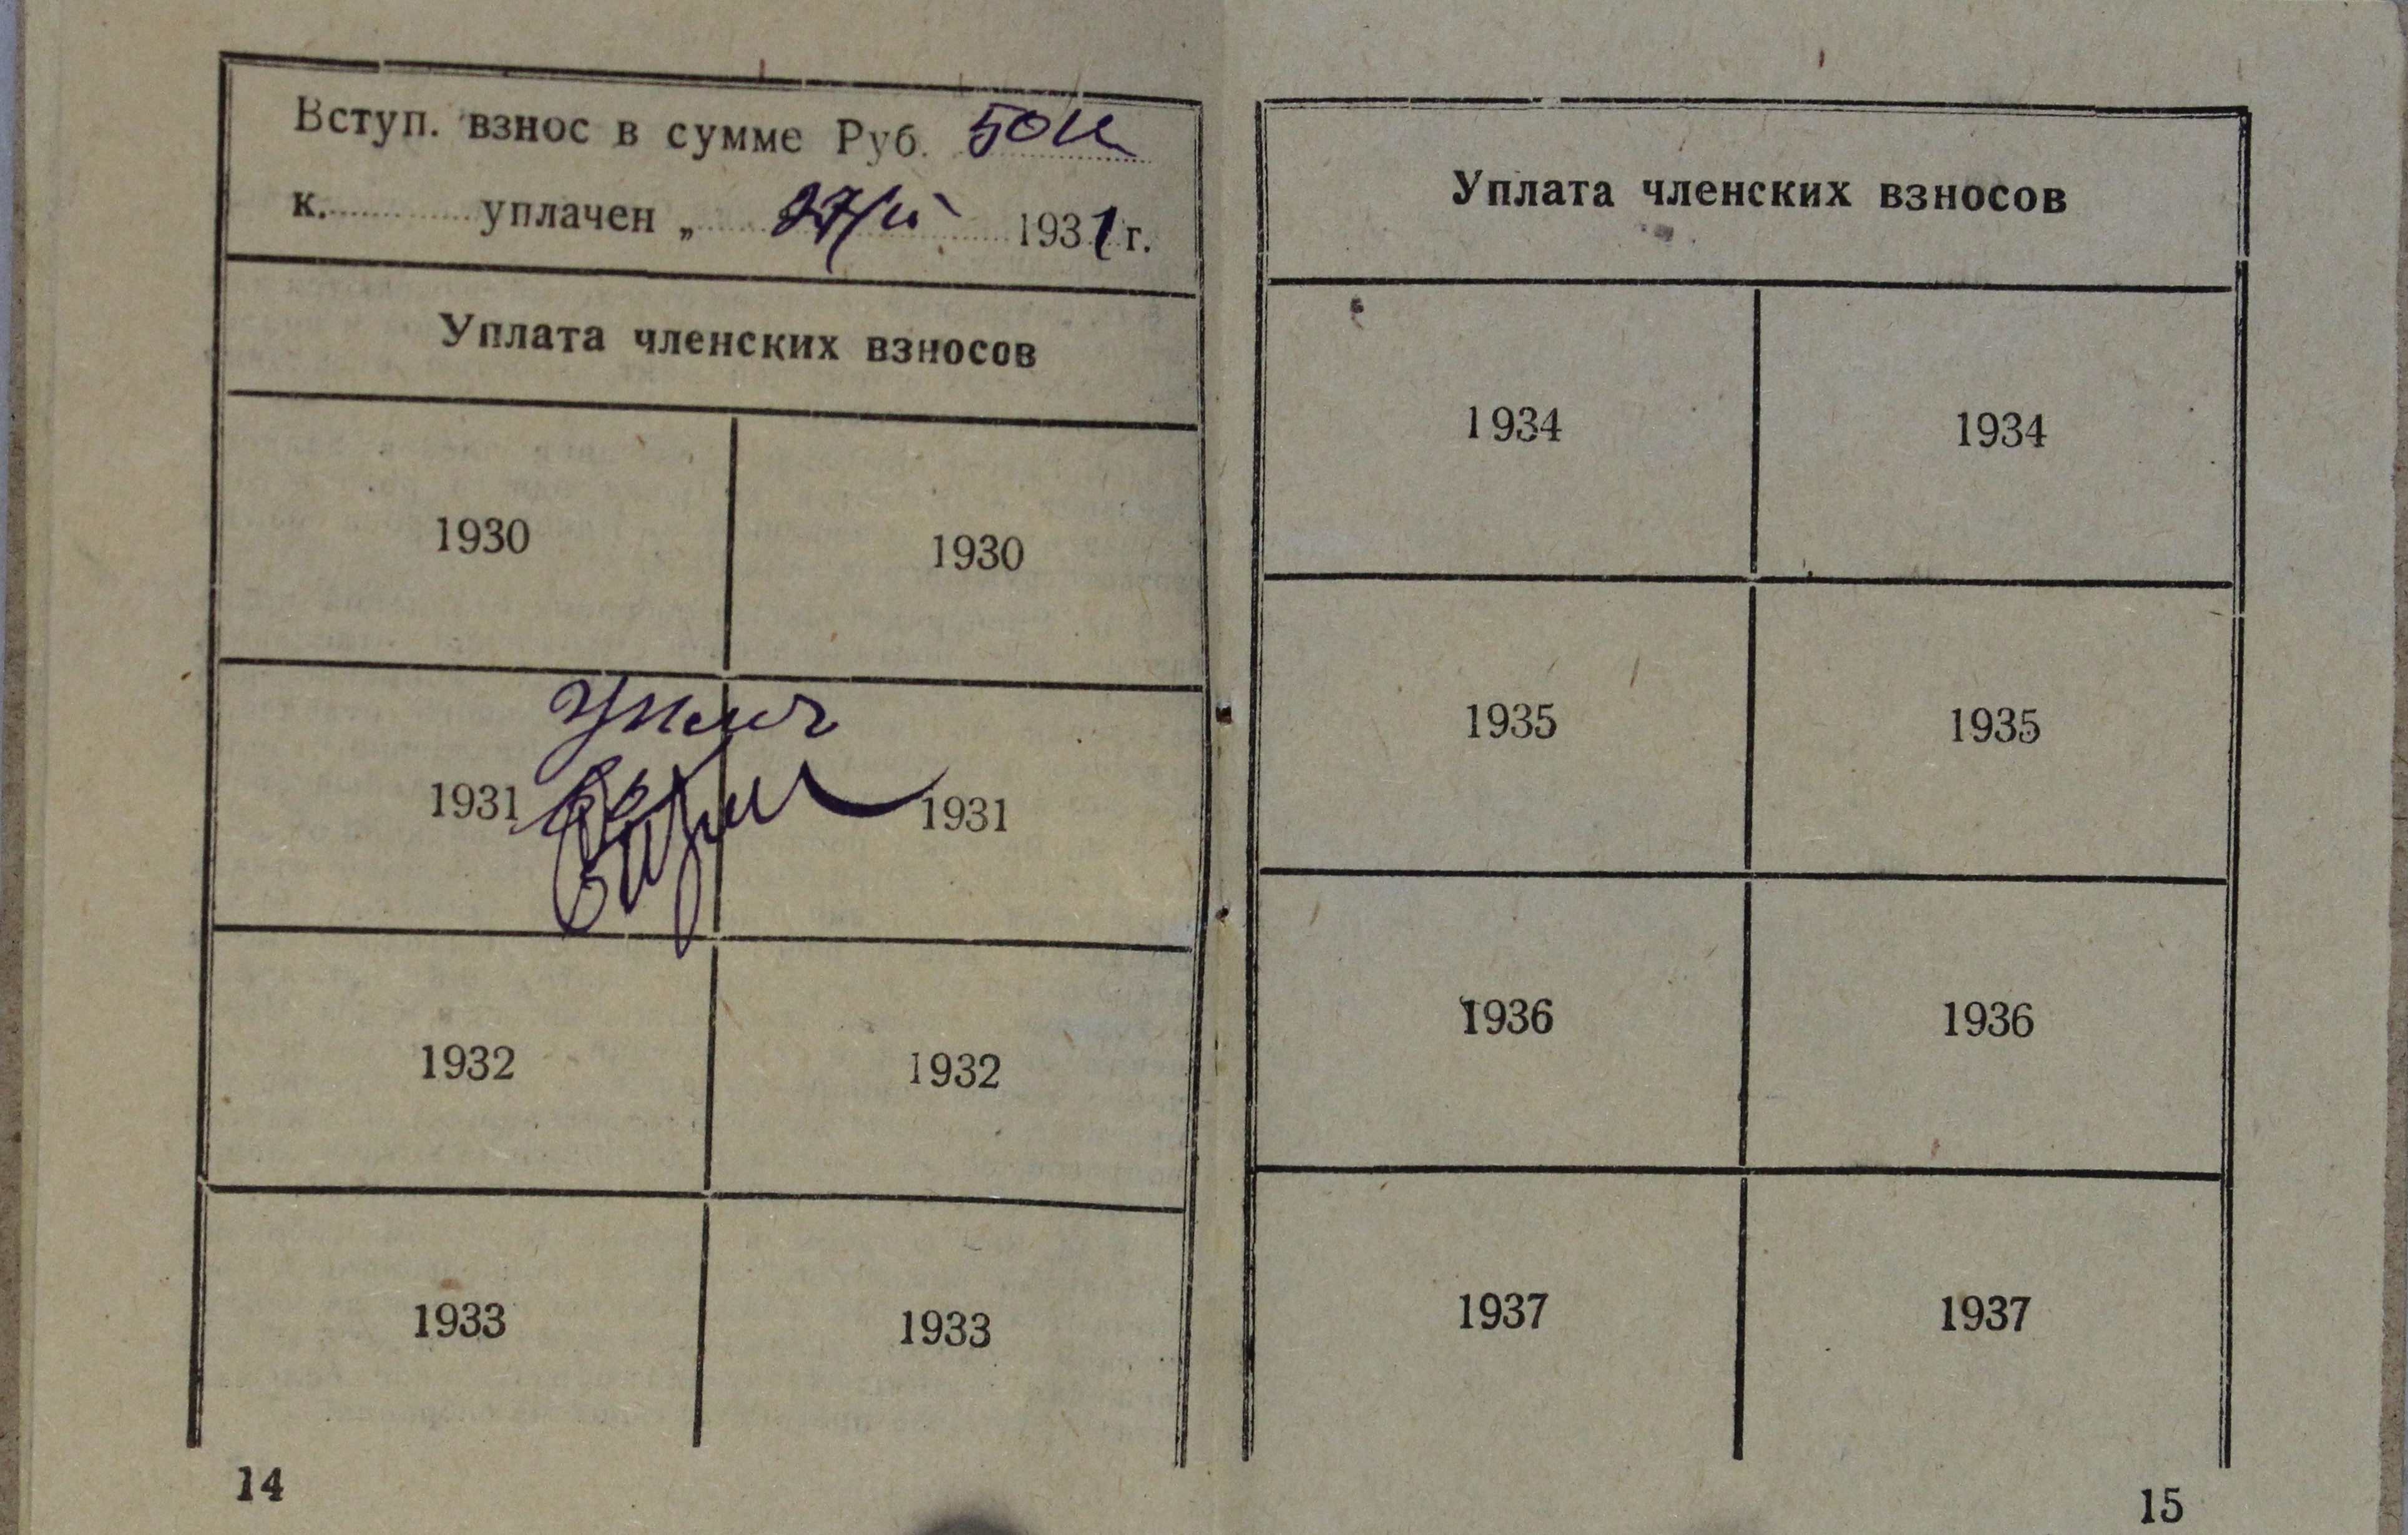 Вступ. взнос в сумме Руб. 50 к
к. уплачен „ 27/ 1931 г.
Уплата членских взносов
1930 1930
Уплач
1931 1931
1932 1932
1933 1933
14
Уплата членских взносов
1934 1934
1935 1935
1936 1936
1937 1937
15